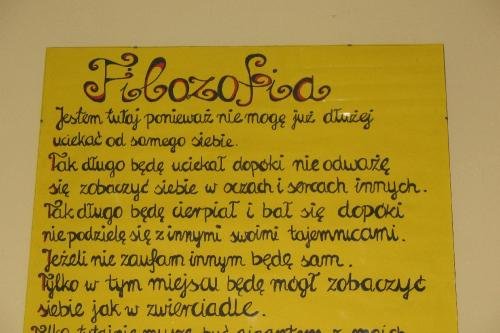 Filozofia
Jestem tutaj ponieważ nie mogę już dłużej
uciekać od samego siebie.
Tak długo będę uciekał dopoki nie odważę
się zobaczyć siebie w oczach i sercach innych.
Tak długo będę cierpiał i bał się dopoki
nie podzielę się z innymi swoimi tajemnicami.
Jeżeli nie zaufam innym będę sam.
Tylko w tym miejscu będę mógł zobaczyć
siebie jak w zwierciadle.